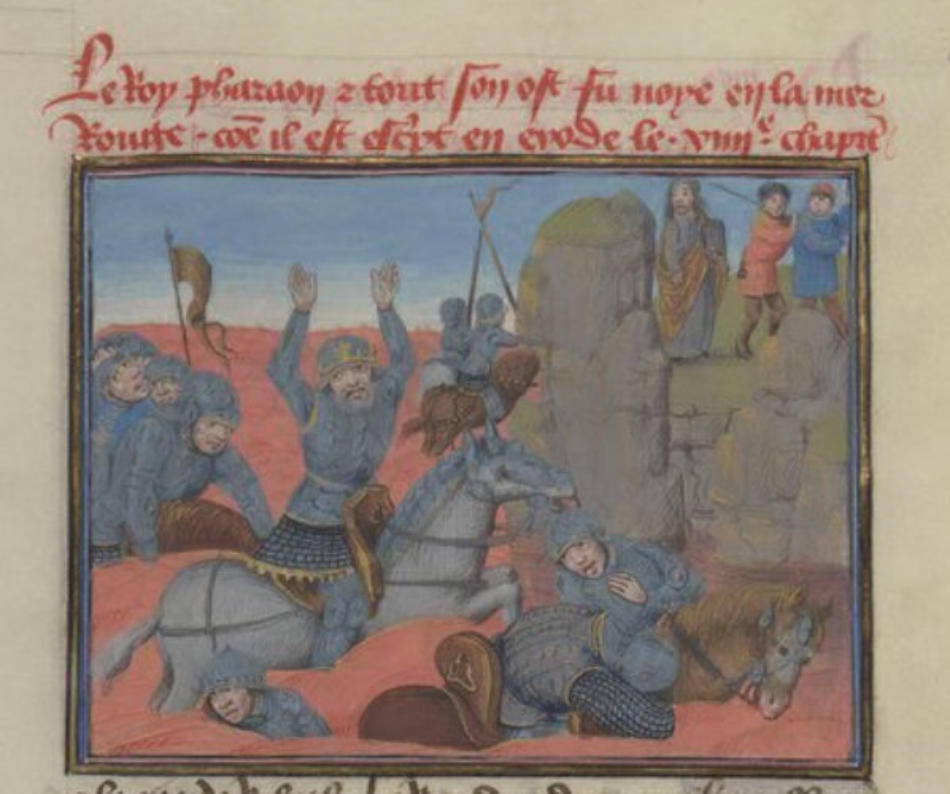 Le Roy pharaon & tout son ost fu noye en la mer
Rouge · coē il est escpt en exode le · xiiii e · chaptē